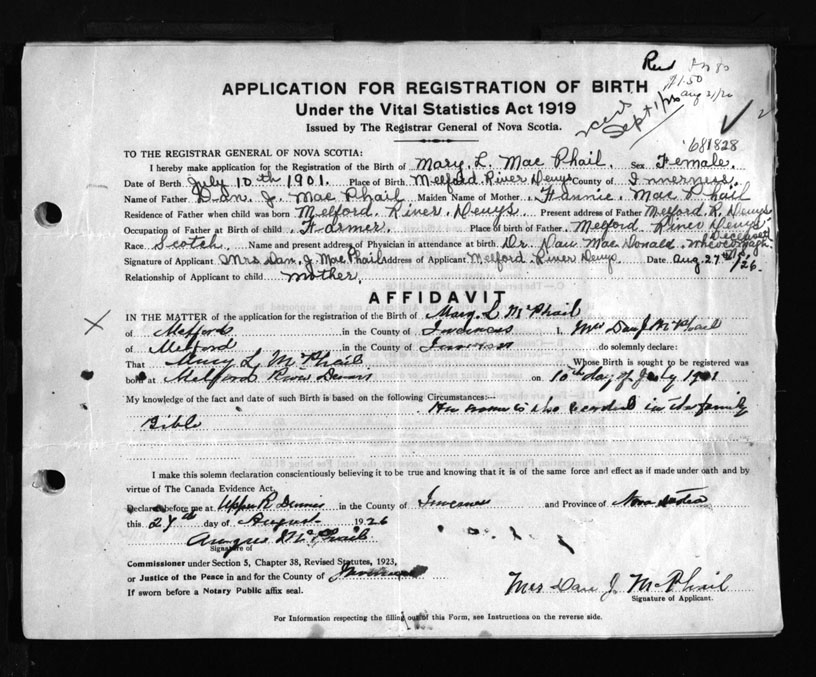 APPLICATION FOR REGISTRATION OF BIRTH
Under the Vital Statistics Act 1919
Issued by The Registrar General of Nova Scotia.
$1.50
Aug 31/26
Recd Sept 1/26
681828
TO THE REGISTRAR GENERAL OF NOVA SCOTIA:
I hereby make application for the Registration of the Birth of Mary. L. Mac Phail. Sex Female.
Date of Birth July 10th 1901. Place of Birth Melford River Denys County of Inverness.
Name of Father Dan. J. Mac Phail Maiden Name of Mother Fannie. Mac Phail
Residence of Father when child was born Melford. River. Denys. Present address of Father Melford R. Denys.
Occupation of Father at Birth of child Farmer. Place of birth of Father Melford River Denys
Race Scotch. Name and present address of Physician in attendance at birth Dr. Dan MacDonald. Whycocomagh. Deceased
Signature of Applicant Mrs Dan. J. MacPhail Address of Applicant Melford River Denys. Date Aug. 27th /26.
Relationship of Applicant to child mother.
AFFIDAVIT
IN THE MATTER of the application for the registration of the Birth of Mary. L McPhail
of Melford in the County of Inverness I, Mrs Dan J McPhail
of Melford in the County of Inverness do solemnly declare:
That Mary L. McPhail Whose Birth is sought to be registered was
born at Melford River Dennis on 10th day of July 1901
My knowledge of the fact and date of such Birth is based on the following Circumstances:—
Her name is also recorded in the family
Bible
I make this solemn declaration conscientiously believing it to be true and knowing that it is of the same force and effect as if made under oath and by
virtue of The Canada Evidence Act.
Declared before me at Upper R Dennis in the County of Inverness and Province of Nova Scotia
this 27th day of August 1926
Angus McPhail
Signature of
Commissioner under Section 5, Chapter 38, Revised Statutes, 1923,
or Justice of the Peace in and for the County of Inverness
If sworn before a Notary Public affix seal.
Mrs Dan J. McPhail
Signature of Applicant.
For Information respecting the filling out of this Form, see Instructions on the reverse side.